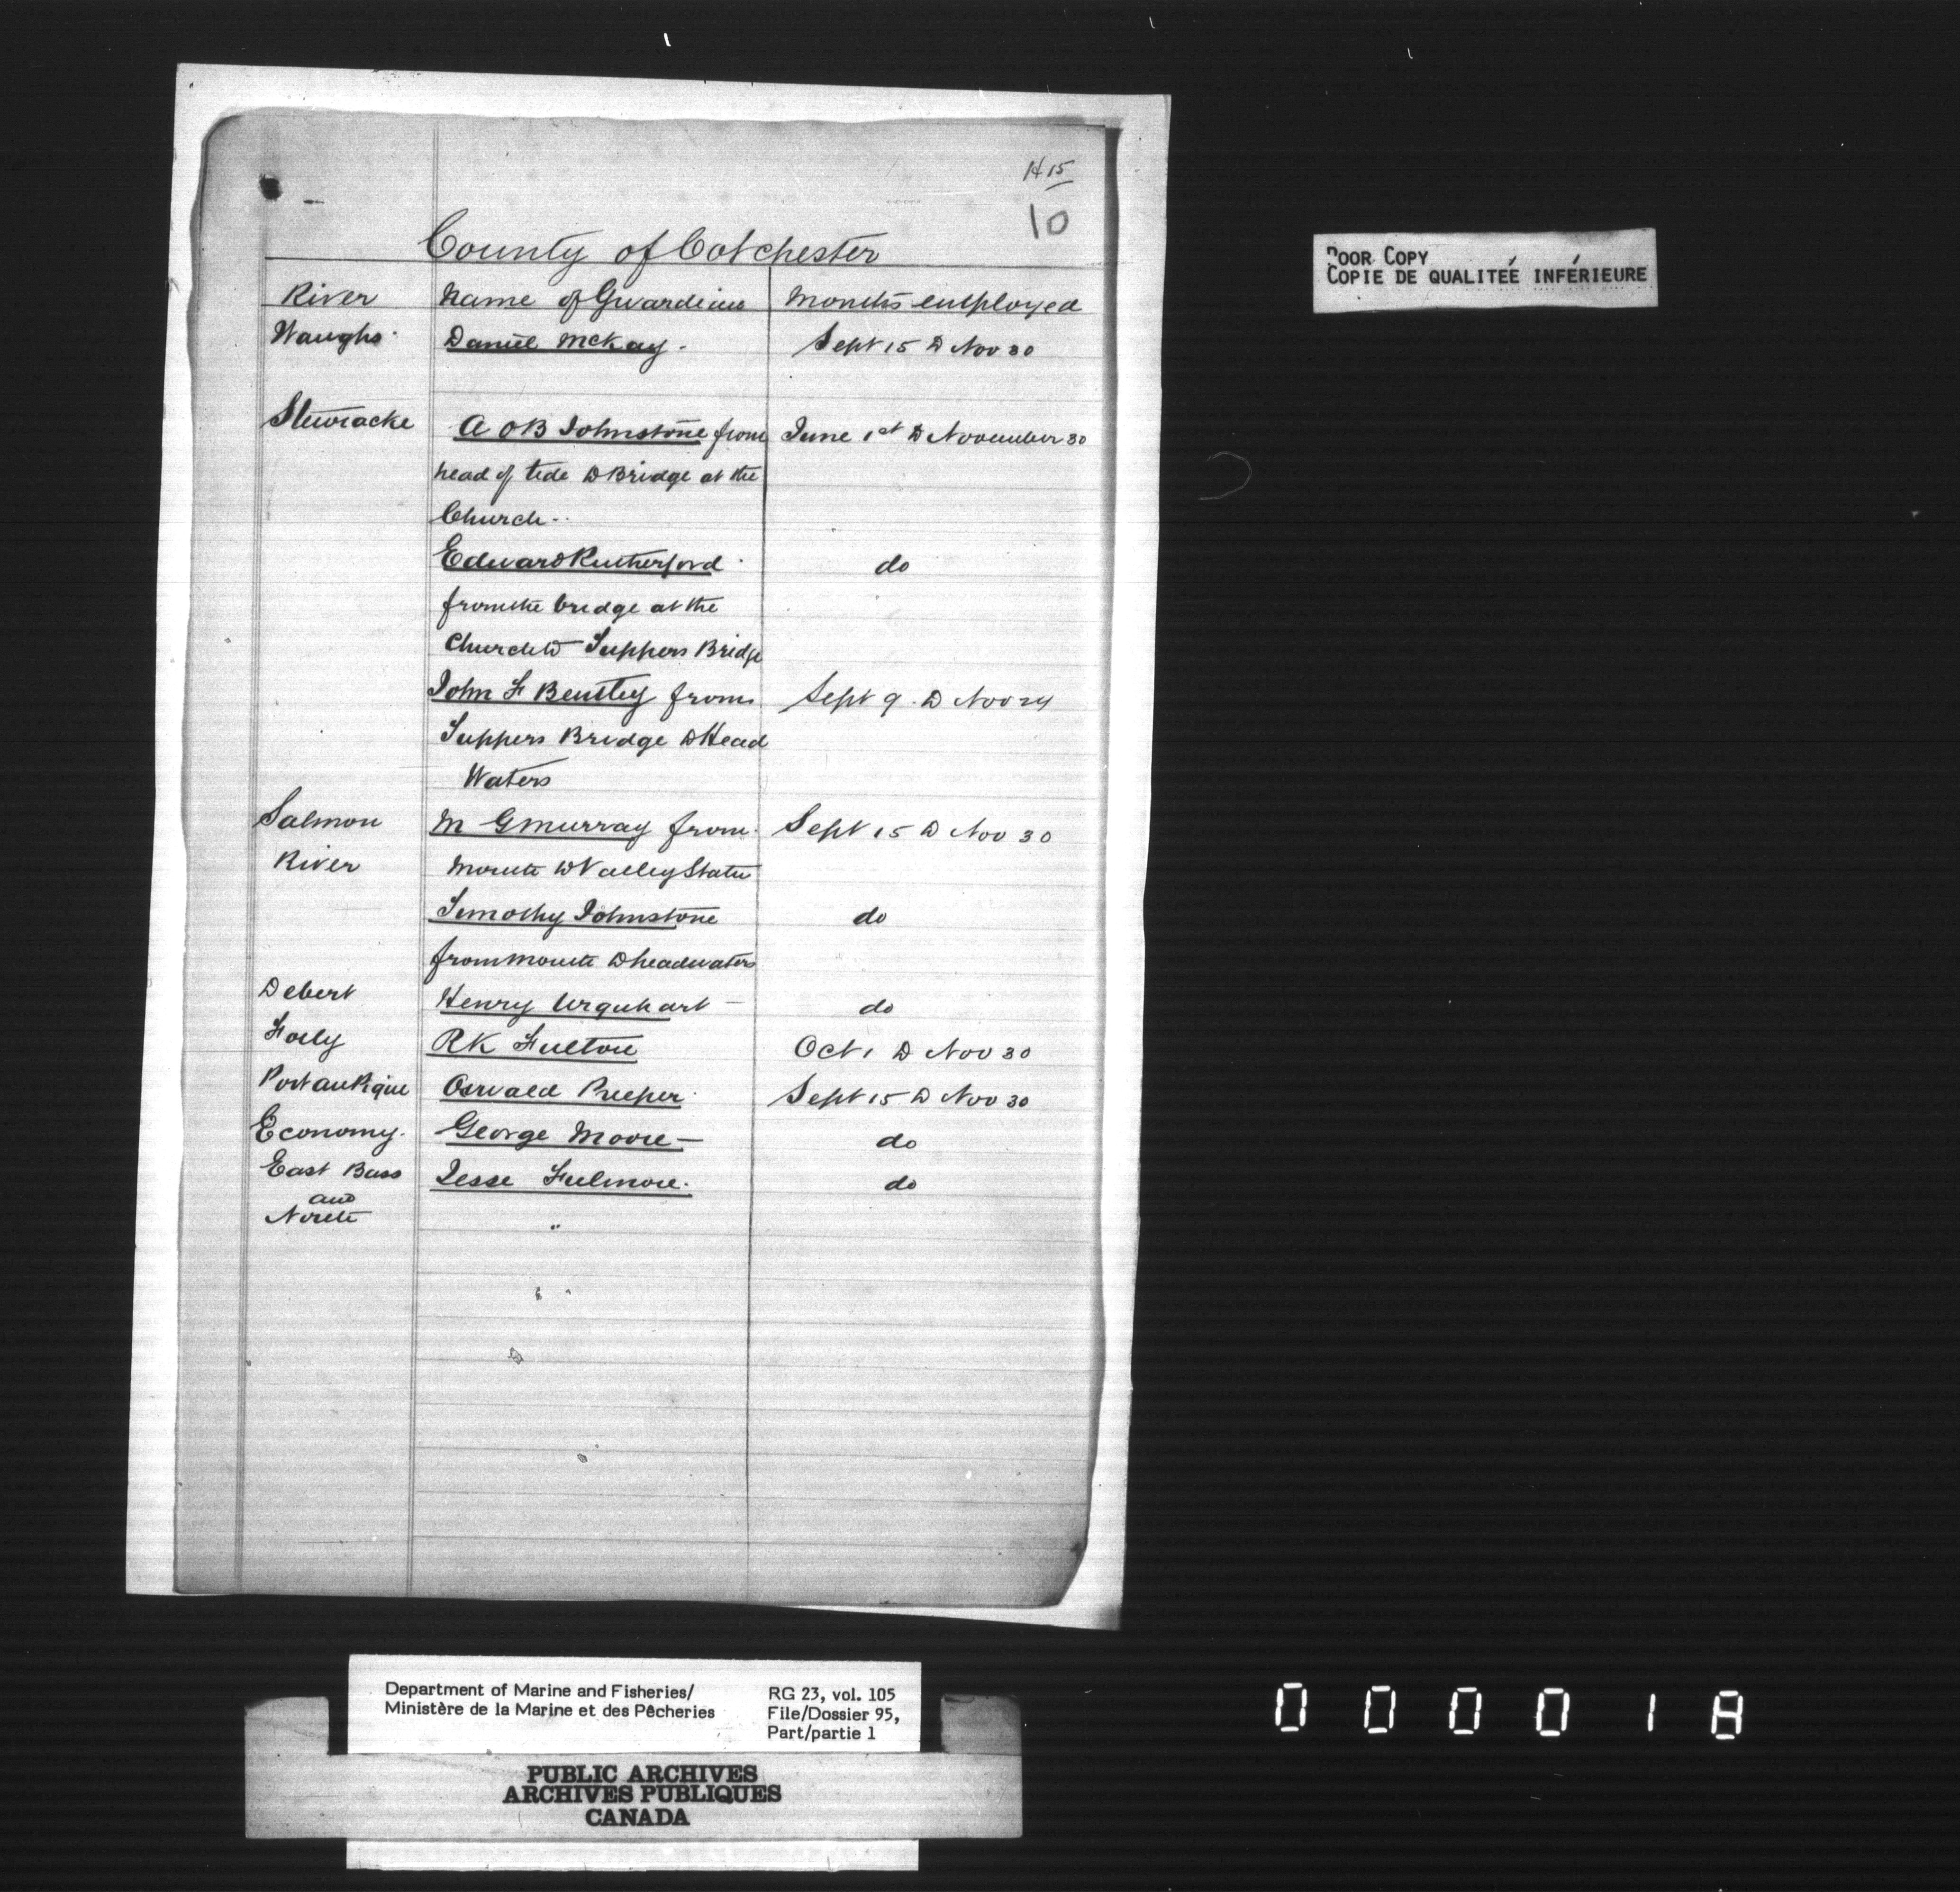 H 15
10
County of Colchester
River Name of Guardians Months employed
Waughs Daniel McKay. Sept 15 to Nov 30
Stewiacke A O B Johnstone from June 1st to November 30
head of tide to Bridge at the
Church..
Edward Rutherford. do
from the bridge at the
Church to Tuppers Bridge
John F Bentley from Sept 9. to Nov 24
Tuppers Bridge to Head
Waters
Salmon M G Murray from Sept 15 to Nov 30
River Mouth to Valley Statn
Timothy Johnstone do
from mouth to headwaters
Debert Henry Urquhart — do
Folly R K Fulton Oct 1 to Nov 30
Portaupique Oswald Peeper. Sept 15 to Nov 30
Economy. George Moore — do
East Bass Jesse Fulmore. do
and
North "
POOR COPY
COPIE DE QUALITÉE INFÉRIEURE
Department of Marine and Fisheries/ RG 23, vol. 105
Ministère de la Marine et des Pêcheries File/Dossier 95,
Part/partie 1
PUBLIC ARCHIVES
ARCHIVES PUBLIQUES
CANADA
000018